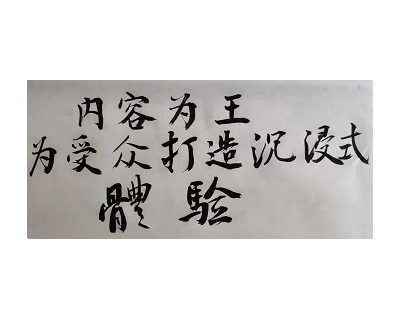 内容为王
为受众打造沉浸式
體验